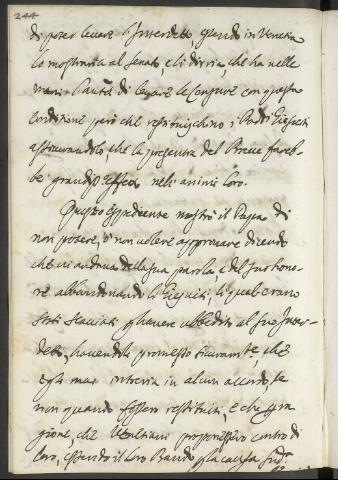 244
di poter levare l'Interdetto, essendo in Venetia
lo mostraria al Senato, e li diria, che ha nelle
mani l'autà di levare le Censure con questa
conditione però che restituischono i Padri Giesuiti
assicurandolo, che la presenza del Breve fareb-
be grandiss.o effetto nelli animi loro.
Questo espediente mostrò il Papa di
non potere, ò non volere approvare dicendo
che vi andava della sua parola, e del suo hono-
re abbandonando li Giesuiti, li quali erano
stati scacciati per havere ubbedito al suo Inter-
detto, havendoli promesso sicuramte, che
egli mai entreria in alcun accordo, se
non quando fossero restituiti, e che la ra-
gione, che Venetiani proponessero contro di
loro, essendo il loro Bando per la causa sud.a